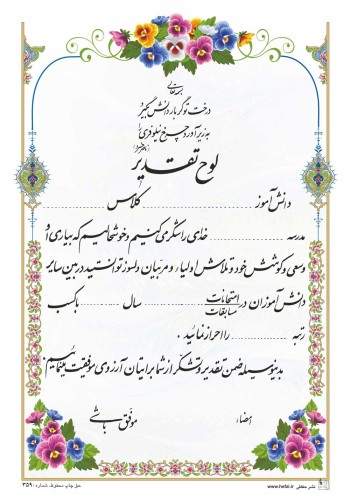 بسمه تعالی
درخت تو گر بار دانش بگیرد
به زیر آوری چرخ نیلوفری را
لوح تقدیر
دانش آموز ........ کلاس ........
مدرسه ........ خدای را شکر می کنیم و خوشحالیم که بیاری او
و سعی و کوشش خود و تلاش اولیاء و مربیان دلسوز توانستید در بین سایر
دانش آموزان در امتحانات مسابقات ........ سال ........ با کسب
رتبه ........ را احراز نمائید .
بدینوسیله ضمن تقدیر و تشکر از شما برایتان آرزوی موفقیت می نمائیم.
امضاء
موفق باشی
حق چاپ محفوظ، شماره: ۳۵۹
www.hefzi.ir